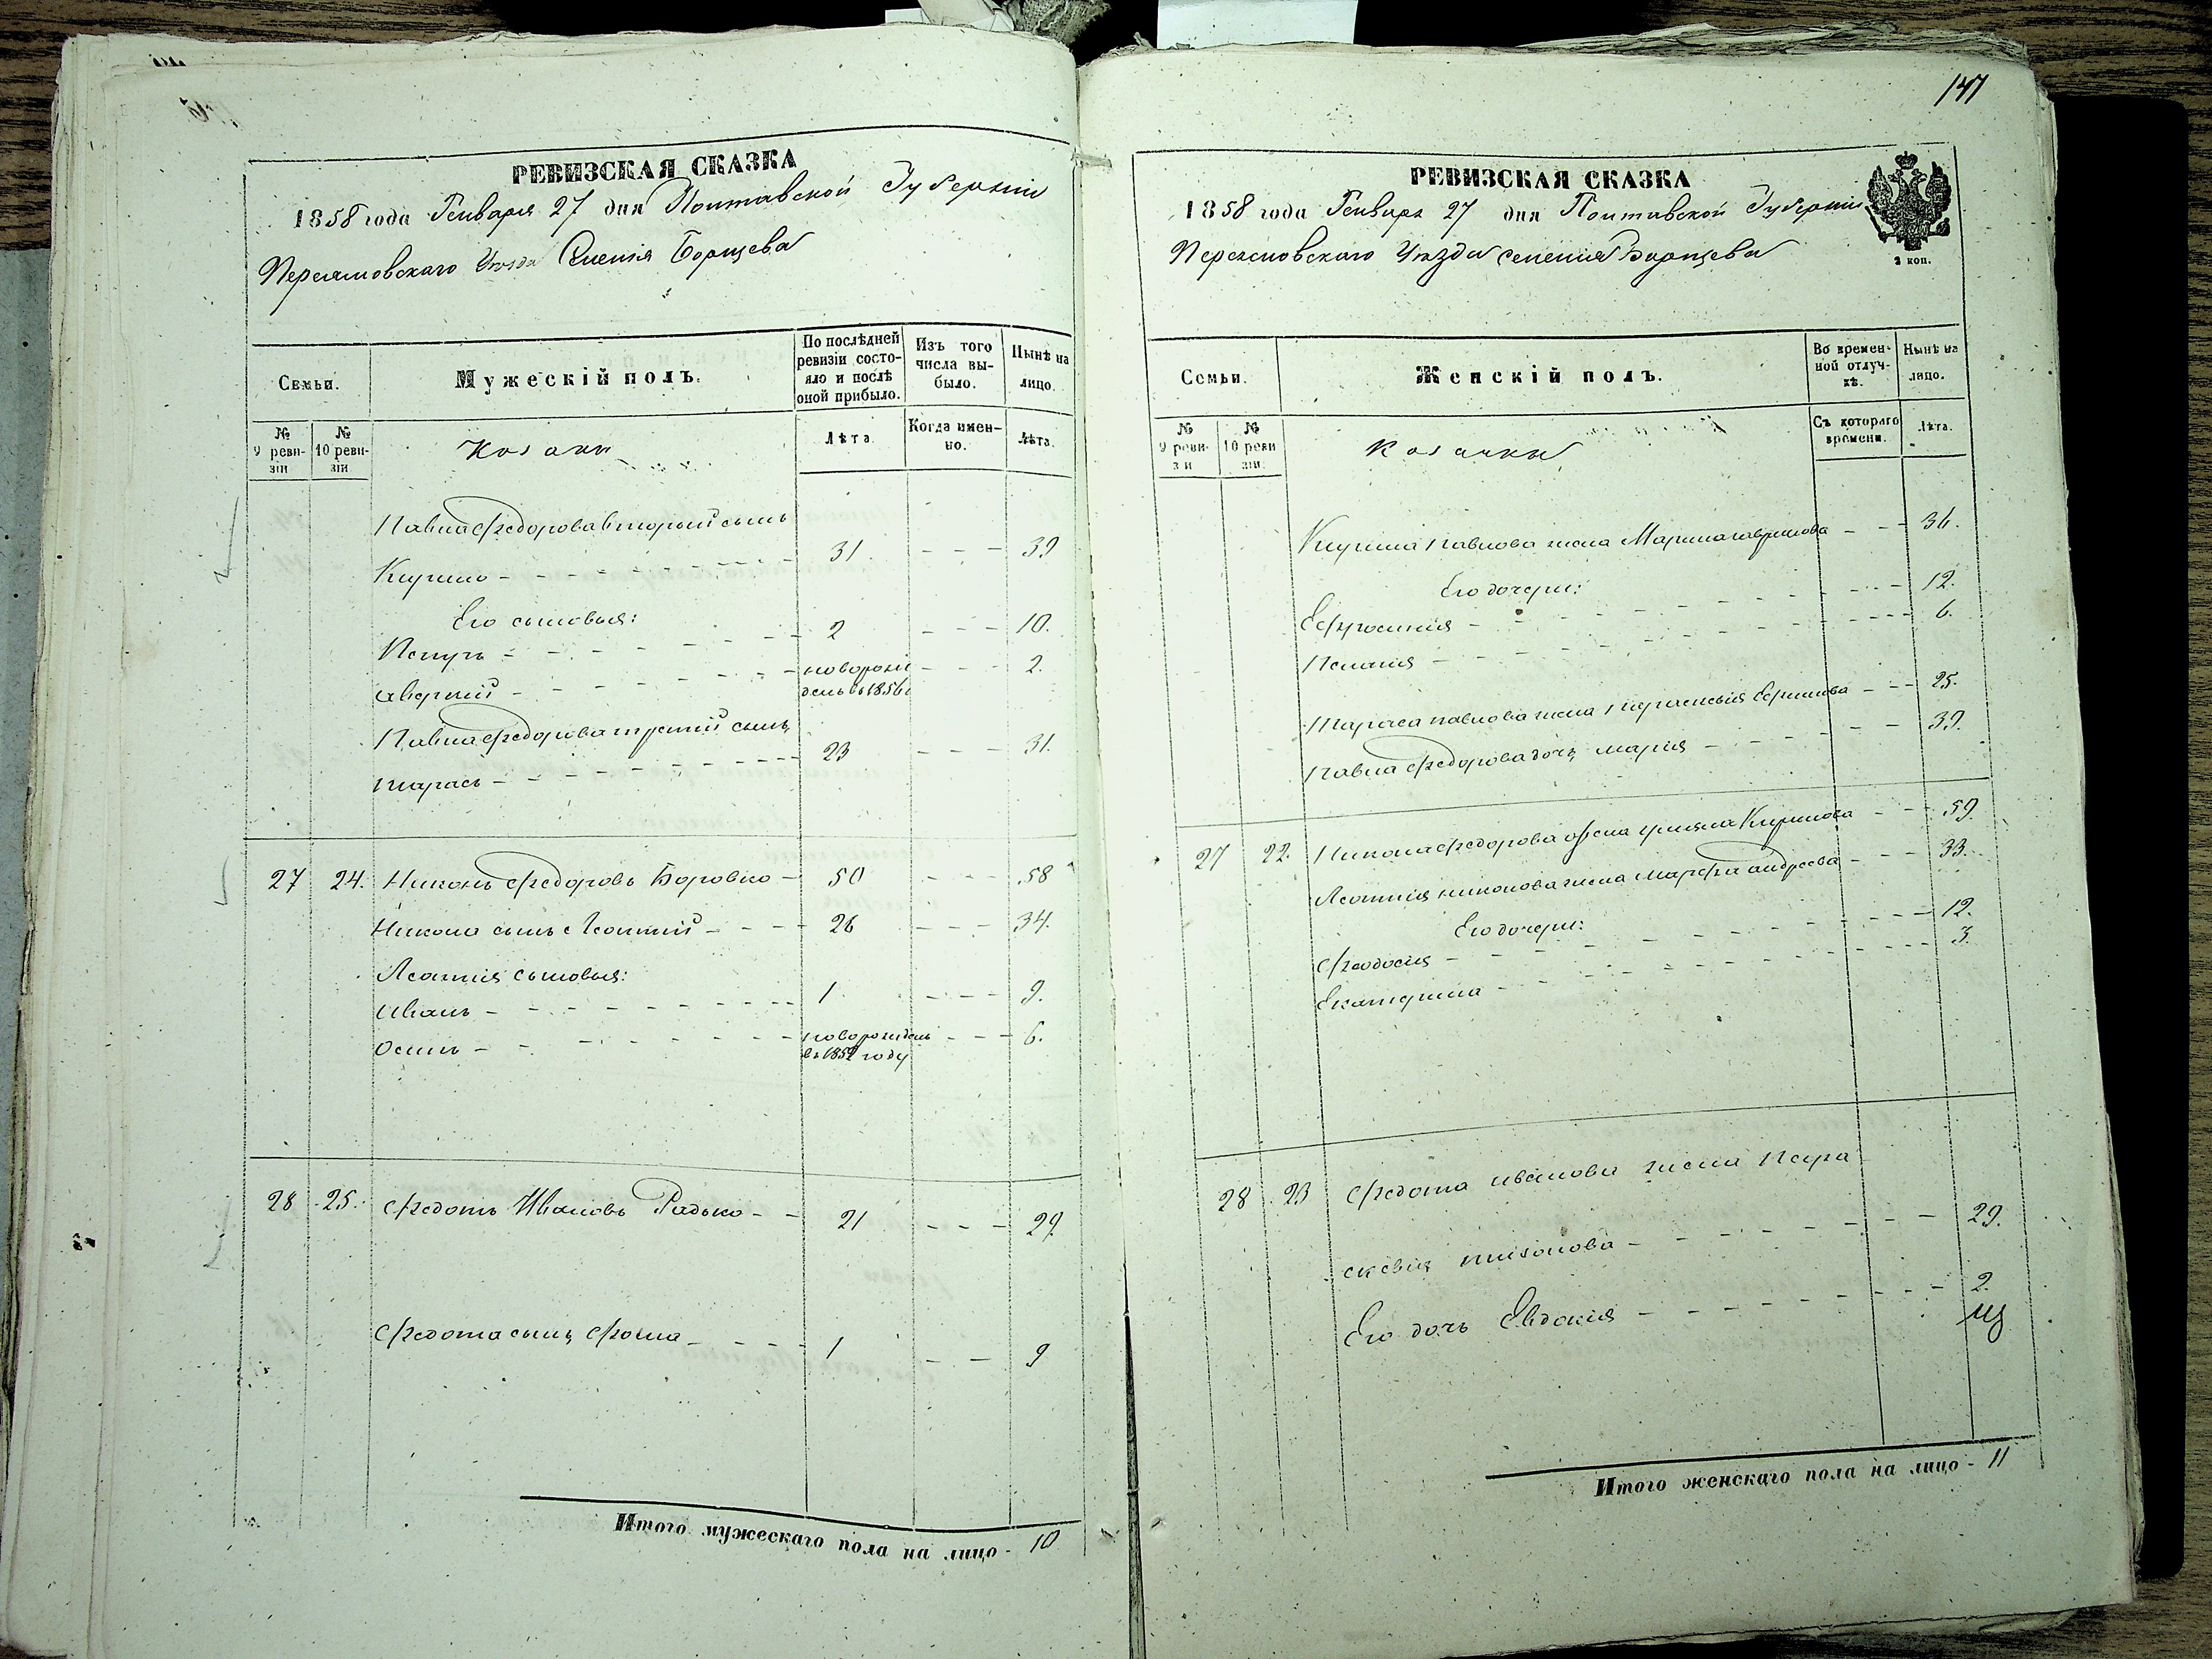 РЕВИЗСКАЯ СКАЗКА
1858 года Генваря 27 дня Полтавской Губернии
Переяславского Уезда Селения Борщева
Семьи.
Мужескій полъ.
По послѣдней ревизіи состояло и послѣ оной прибыло.
Изъ того числа выбыло.
Нынѣ на лицо.
№ 9 ревизіи
№ 10 ревизіи
Козаки
Лѣта
Когда именно.
Лѣта.
Павла Федорова вторый сынъ
Кирило - - - 31 - - - 39
Его сыновья:
Петръ - - - 2 - - - 10.
Аверкий - - - новорожденъ въ 1856 - - - 2.
Павла Федорова третій сынъ
Тарасъ - - - 23 - - - 31.
27 24. Никонъ Федоровъ Боровко - 50 - - - 58
Никона сынъ Леонтий - - - 26 - - - 34.
Леонтия сыновья:
Иванъ - - - 1 - - - 9.
Осипъ - - - новорожденъ въ 1852 году - - - 6.
28 25. Федотъ Ивановъ Радько - - 21 - - - 29
Федота сынъ Фома - - - 1 - - 9
Итого мужескаго пола на лицо - 10
147
РЕВИЗСКАЯ СКАЗКА
1858 года Генваря 27 дня Полтавской Губернии
Переяславского Уезда селения Борщева
2 коп.
Семьи.
Женскій полъ.
Во временной отлучкѣ.
Нынѣ на лицо.
№ 9 ревизіи
№ 10 ревизіи
Козачки
Съ котораго времени.
Лѣта.
Кирила Павлова жена Марина Гаврилова - - - 36.
Его дочери:
Ефросиния - - - 12.
Пелагия - - - 6.
Тараса Павлова жена Параскевия Ефимова - - - 25.
Павла Федорова дочь Мария - - - 39.
27 22. Никона Федорова жена Ульяна Кирилова - - - 59
Леонтия Никонова жена Марфа Андреева - - - 33.
Его дочери:
Феодосия - - - 12.
Екатерина - - - 3.
28 23 Федота Иванова жена Пара
скевия Тихонова - - - 29.
Его дочь Евдокия - - - 2.
Итого женскаго пола на лицо - 11